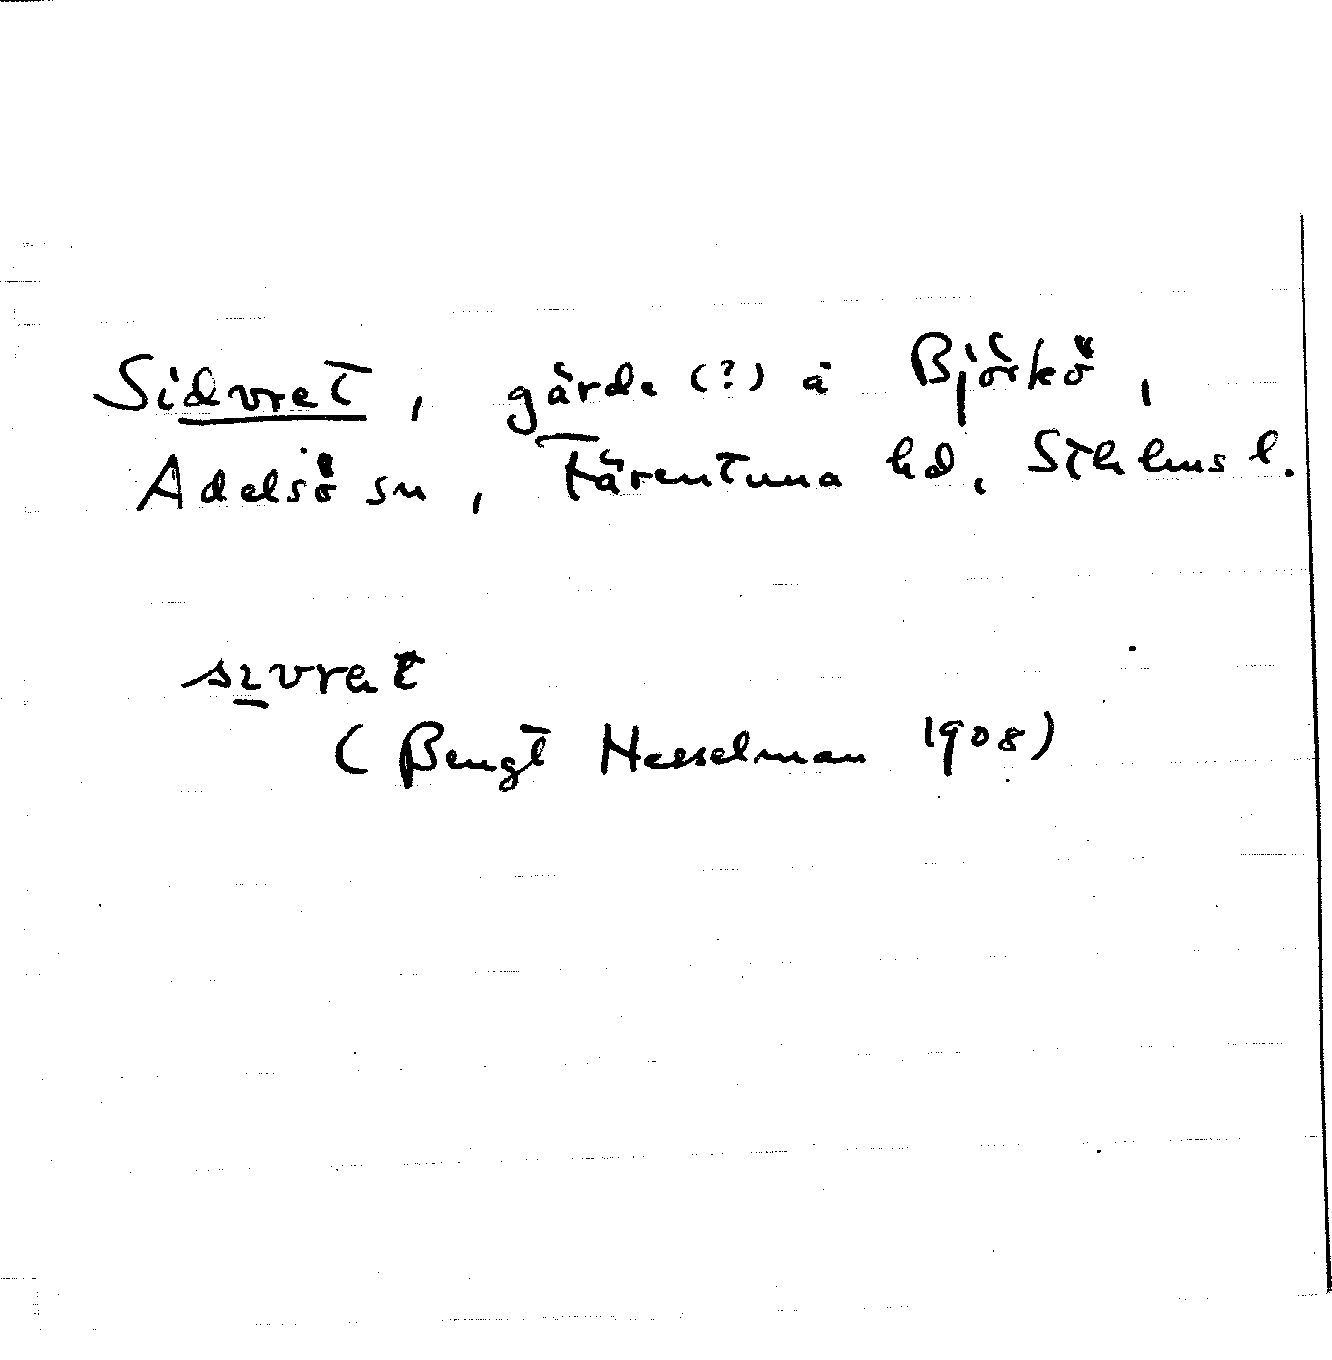 Sidvret, gärde (?) å Björkö,
Adelsö sn, Färentuna hd, Sthlms l.
sıvret
(Bengt Hesselman 1908)